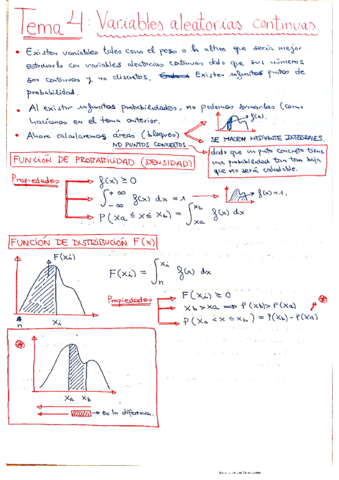 Tema 4: Variables aleatorias continuas
• Existen variables tales como el peso o la altura que sería mejor
estudiarlo con variables aleatorias continuas dado que sus números
son continuos y no discretos. Existen infinitos puntos de
probabilidad.
• Al existir infinitas probabilidades, no podemos sumarlas (como
hacíamos en el tema anterior.
f(x).
• Ahora calcularemos áreas (bloques)
NO PUNTOS CONCRETOS
SE HACEN MEDIANTE INTEGRALES.
dado que un punto concreto tiene
una probabilidad tan tan baja
que no sería calculable.
FUNCIÓN DE PROBABILIDAD (DENSIDAD)
Propiedades
f(x) ≥ 0
∫-∞ +∞ f(x) dx = 1
f(x)=1.
P(xa ≤ x ≤ xb) = ∫xa xb f(x) dx
FUNCIÓN DE DISTRIBUCIÓN F(x)
F(xi)
F(xi) = ∫n xi f(x) dx
Propiedades
F(xi) ≥ 0
xb > xa ⇒ P(xb) > P(xa)
P(xa < x ≤ xb) = P(xb) - P(xa)
n
xi
xa xb
→ es la diferencia.